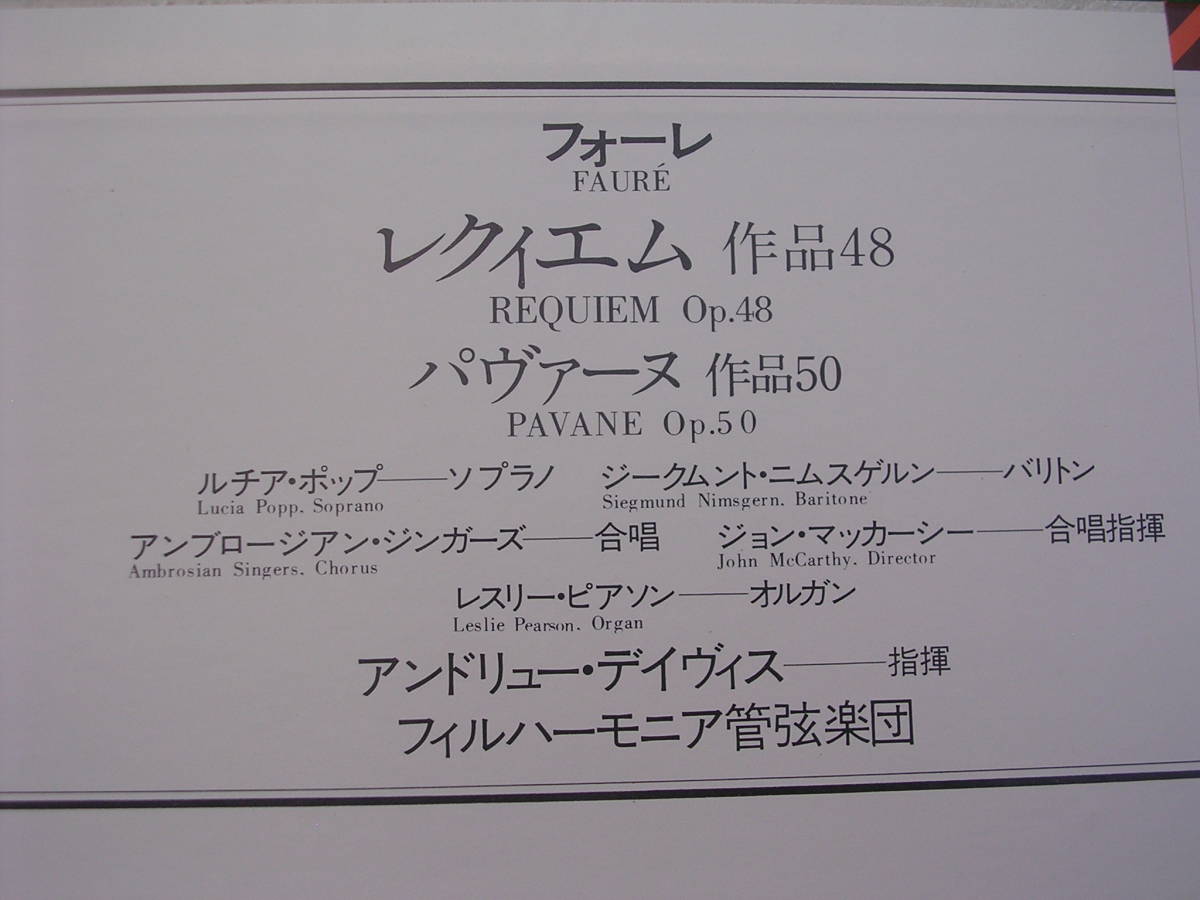 フォーレ
FAURÉ
レクィエム 作品48
REQUIEM Op.48
パヴァーヌ 作品50
PAVANE Op.50
ルチア・ポップ――ソプラノ ジークムント・ニムスゲルン――バリトン
Lucia Popp. Soprano Siegmund Nimsgern. Baritone
アンブロージアン・ジンガーズ――合唱 ジョン・マッカーシー――合唱指揮
Ambrosian Singers. Chorus John McCarthy. Director
レスリー・ピアソン――オルガン
Leslie Pearson. Organ
アンドリュー・デイヴィス――指揮
フィルハーモニア管弦楽団